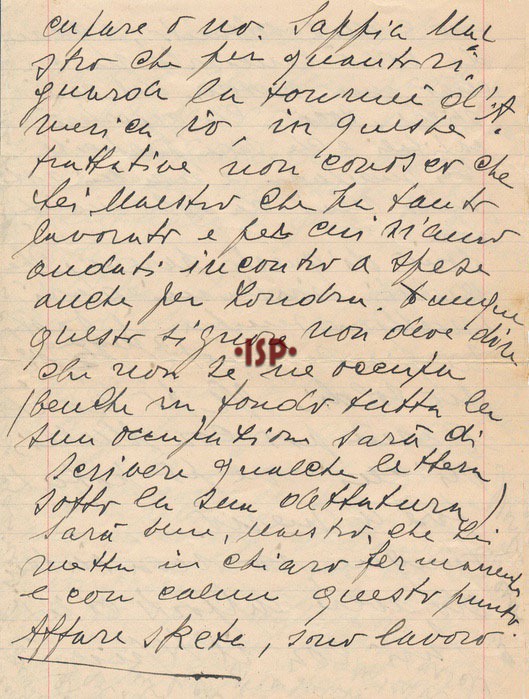 cupare o no. Sappia Mae
stro che per quanto ri
guarda la tourneé d'A
merica io, in queste
trattative non conosco che
Lei Maestro che ha tanto
lavorato e per cui siamo
andati incontro a spese
anche per Londra. Dunque
questo signore non deve dire
che non se ne occupa
(benché in fondo tutta la
sua occupazione sarà di
scrivere qualche lettera
sotto la sua dettatura)
Sarà bene, Maestro, che Lei
metta in chiaro fermamente
e con calma questo punto.
Affare Sketc, sono lavoro
·ISP·